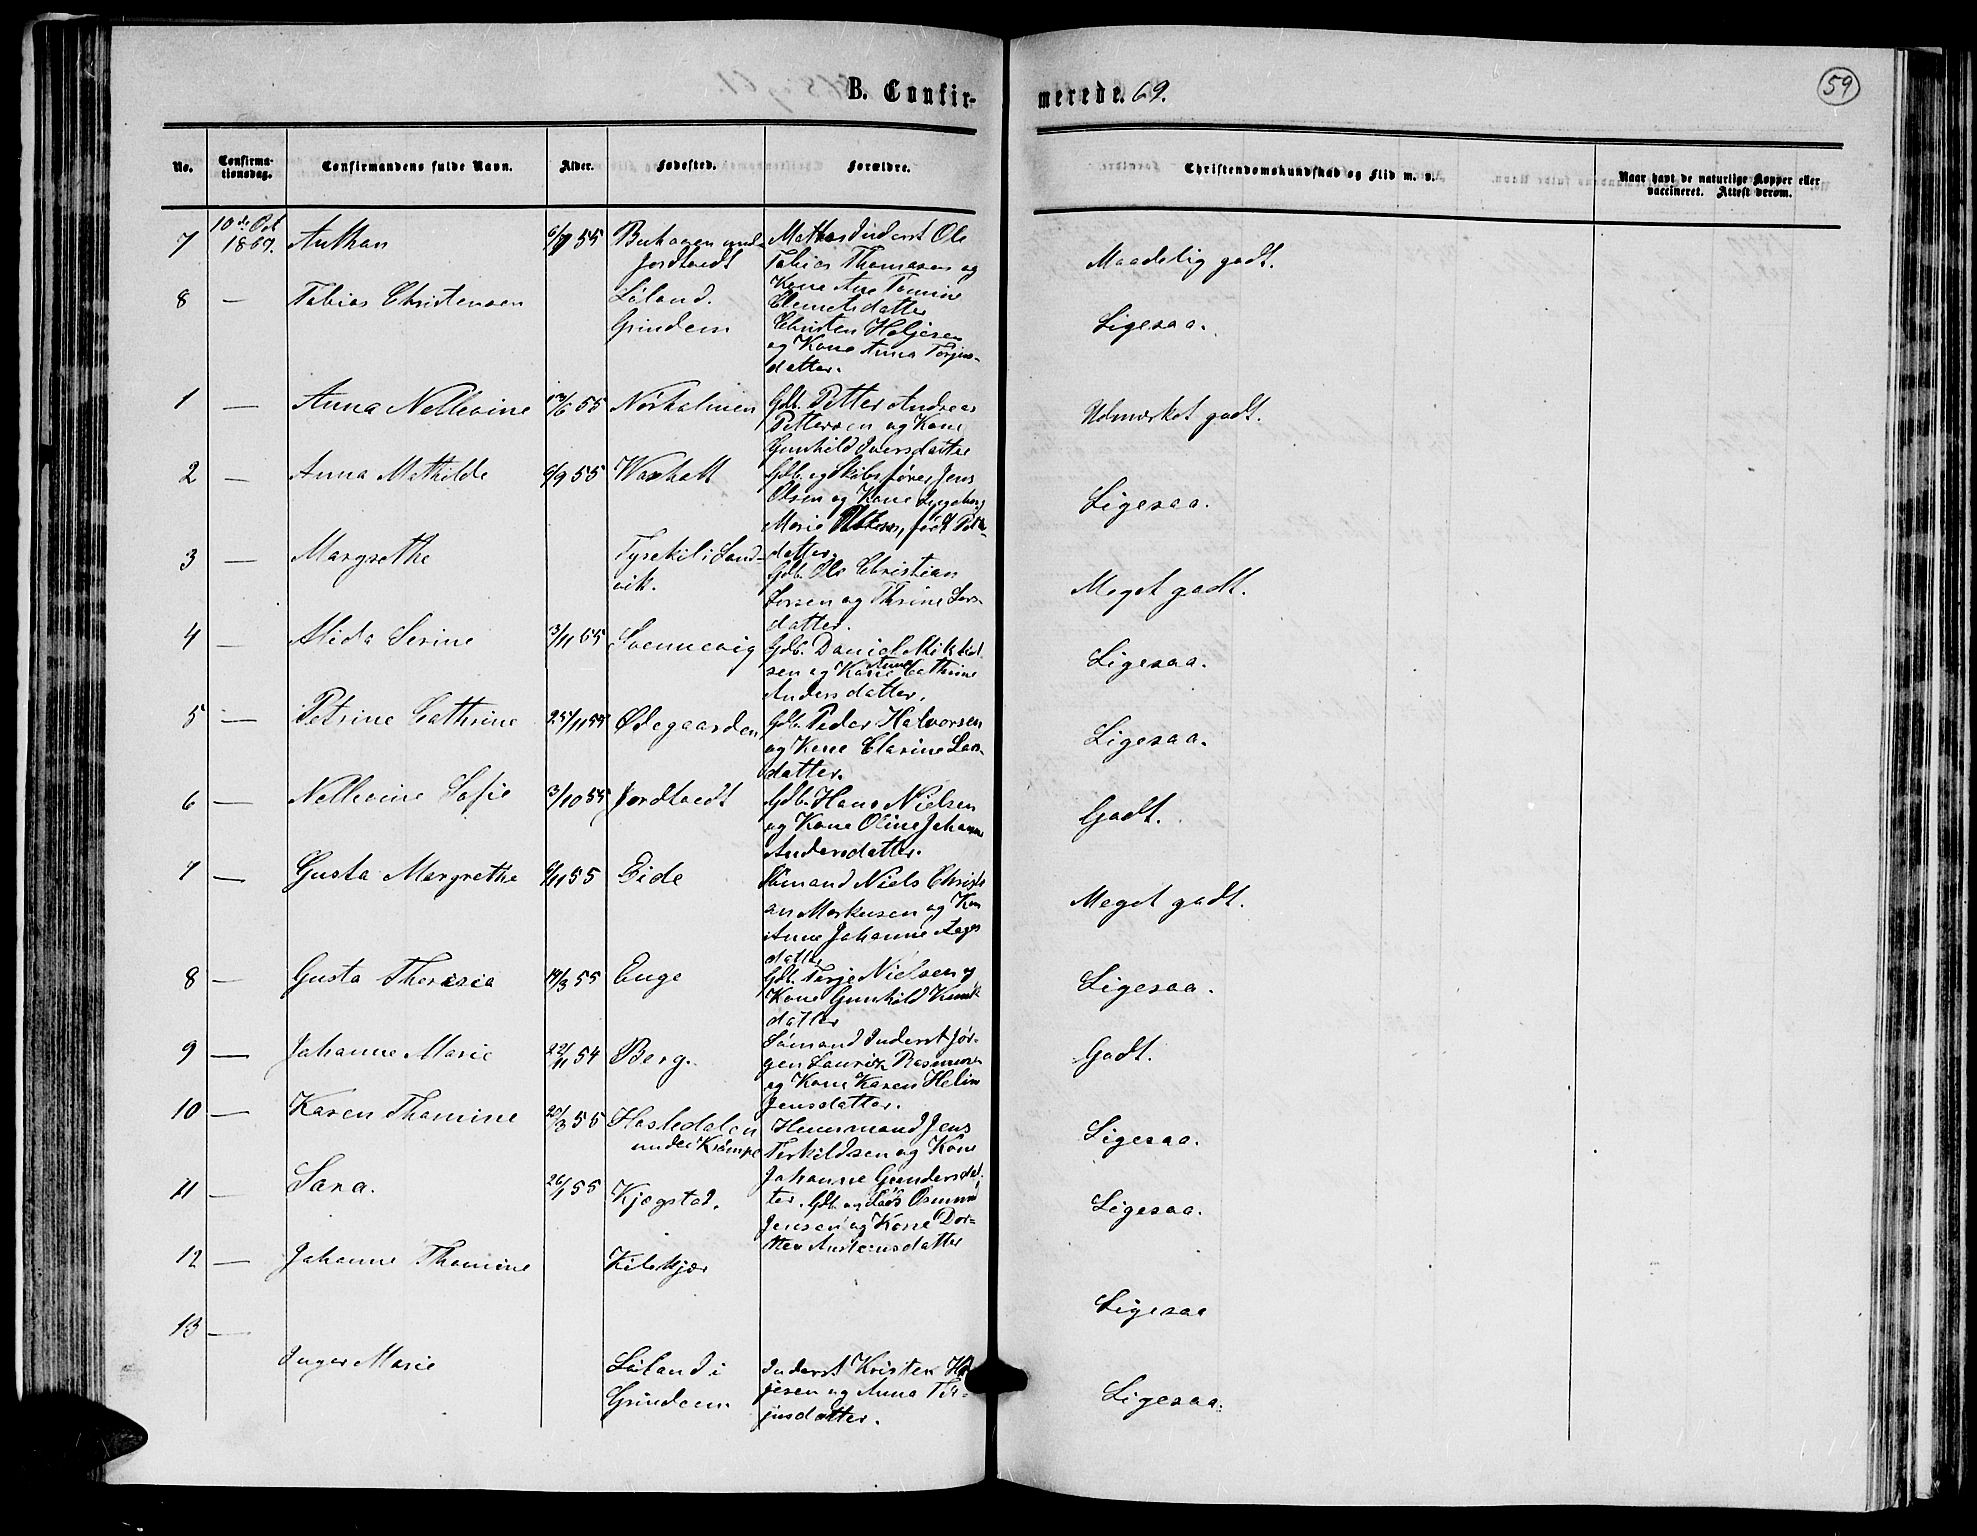 B. Confir-
merede. 69.
59
No.
Confirma-
tionsdag.
Confirmandens fulde Navn.
Alder.
Fødested.
Forældre.
Christendomskundskab og Flid m. v.
Naar havt de naturlige Kopper eller
vaccineret. Attest derom.
7 10de Oct 1869. Anthon 6/7 55
Inderst Ole
Tobias Thomasen og
Kone Ane Tomine
Clemetsdatter
Maadelig godt.
8 — Tobias Christensen
Grindem
Christen
og Kone Anna Torjus-
datter.
Ligesaa.
1 — Anna Nellevine 55 Nørholmen
Gdb. Petter Andreas
Pettersen og Kone
Gunhild Iversdatter
Udmærket godt.
2 — Anna Mathilde 6/9 55
Gdb. og Skibsfører Jens
Olsen og Kone Ingeborg
Marie
datter.
Ligesaa.
3 — Margrethe
vik.
Gdb. Ole Christian
og Thrine Lars-
datter.
Meget godt.
4 — Alida Serine 3/11 55 Svennevig
Gdb. Daniel Mikkel-
sen og Kone Anne Cathrine
Andersdatter.
Ligesaa.
5 — Petrine Cathrine 25/11 55 Ødegaarden
Gdb. Peder Halvorsen
og Kone Clarine Lars-
datter.
Ligesaa.
6 — Nellevine Sofie 3/10 55 Jordtvedt
Gdb. Hans Nielsen
og Kone Oline Johanne
Andersdatter.
Godt.
7 — Gusta Margrethe 6/11 55 Eide
Sømand Niels Christi
an Markusen og Kone
Anne Johanne Aages
datter
Meget godt.
8 — Gusta Theresia 14/3 55 Enge
Gdb. Terje Nielsen og
Kone Gunhild Knuds
datter
Ligesaa.
9 — Johanne Marie 22/11 54 Berg.
Sømand Inderst Jør-
gen Laurits Rasmusen
og Kone Karen Helene
Jensdatter.
Godt.
10 — Karen Thomine 20/3 55 Hasledalen
under
Huusmand Jens
Terkildsen og Kone
Johanne Gundersdat-
ter.
Ligesaa.
11 — Sara. 26/1 55 Kjøgstad.
Gdb. og Lods Osmund
Jensen og Kone Dor-
thea Austensdatter
Ligesaa.
12 — Johanne Thomine
Ligesaa
13 —
Inger Marie
Løland i
Grindem
Inderst Kristen Hol-
jesen og Anna Tor-
jusdatter.
Ligesaa.